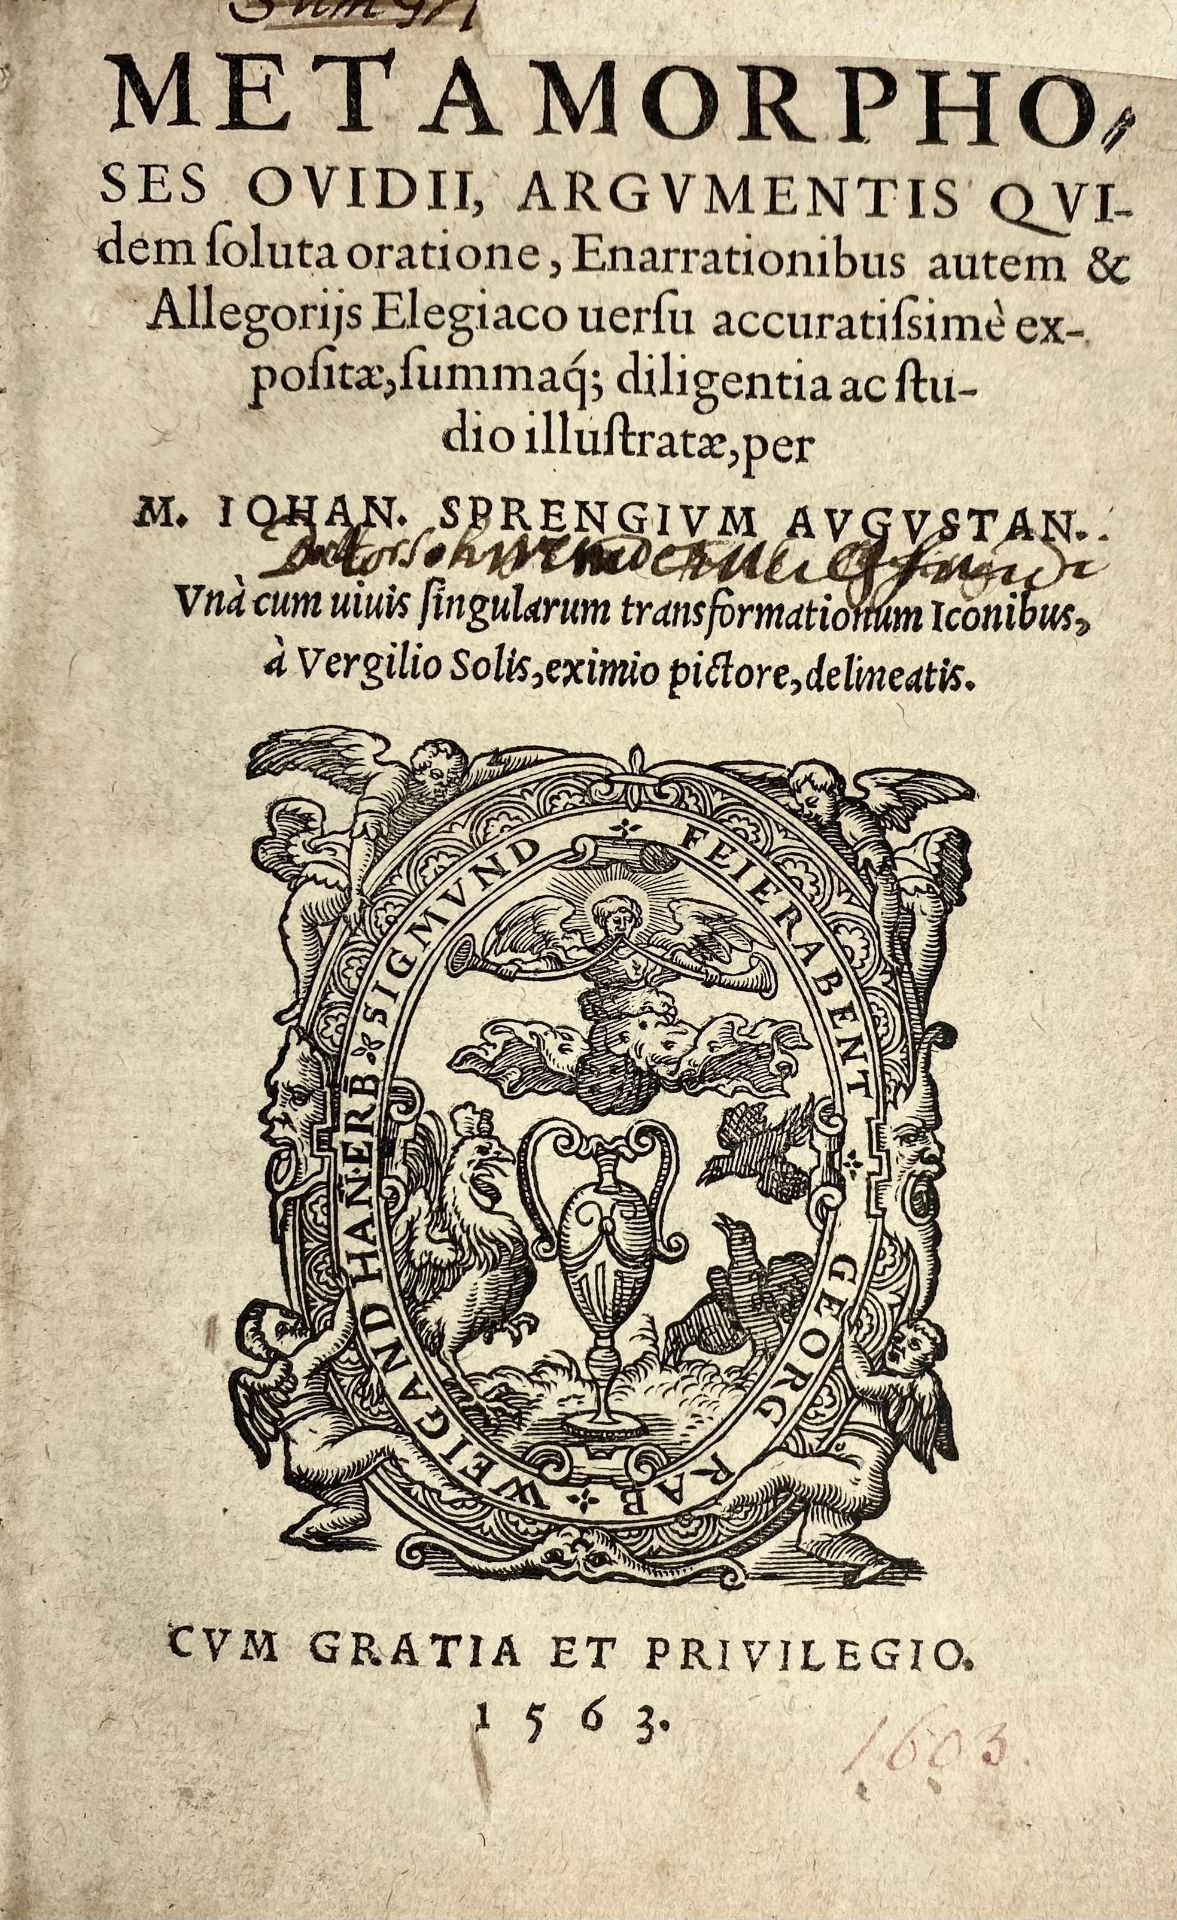 METAMORPHO-
SES OVIDII, ARGVMENTIS QVI-
dem ſoluta oratione, Enarrationibus autem &
Allegorijs Elegiaco uerſu accuratiſsimè ex-
poſitæ, ſummaq́; diligentia ac ſtu-
dio illuſtratæ, per
M. IOHAN. SPRENGIVM AVGVSTAN.
Vnà cum uiuis ſingularum transformationum Iconibus,
à Vergilio Solis, eximio pictore, delineatis.
SIGMVND FEIERABENT
GEORG RAB
WEIGAND HAN·ERB
CVM GRATIA ET PRIVILEGIO.
1563.
1603.